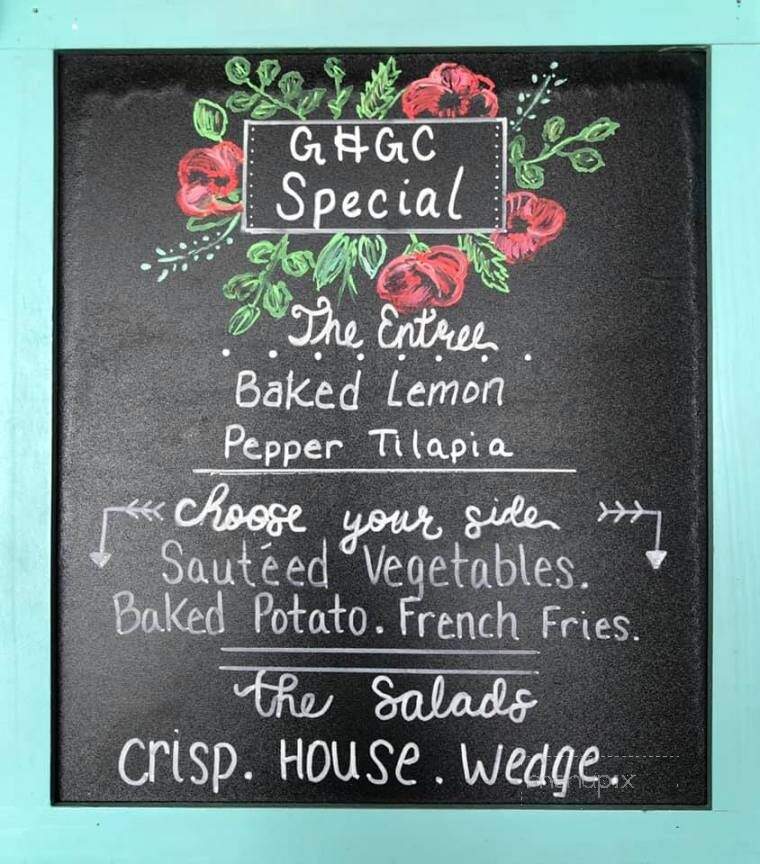 GHGC
Special
The Entree
Baked Lemon
Pepper Tilapia
choose your side
Sautéed Vegetables.
Baked Potato. French Fries.
the Salads
Crisp. HOUSE. Wedge.